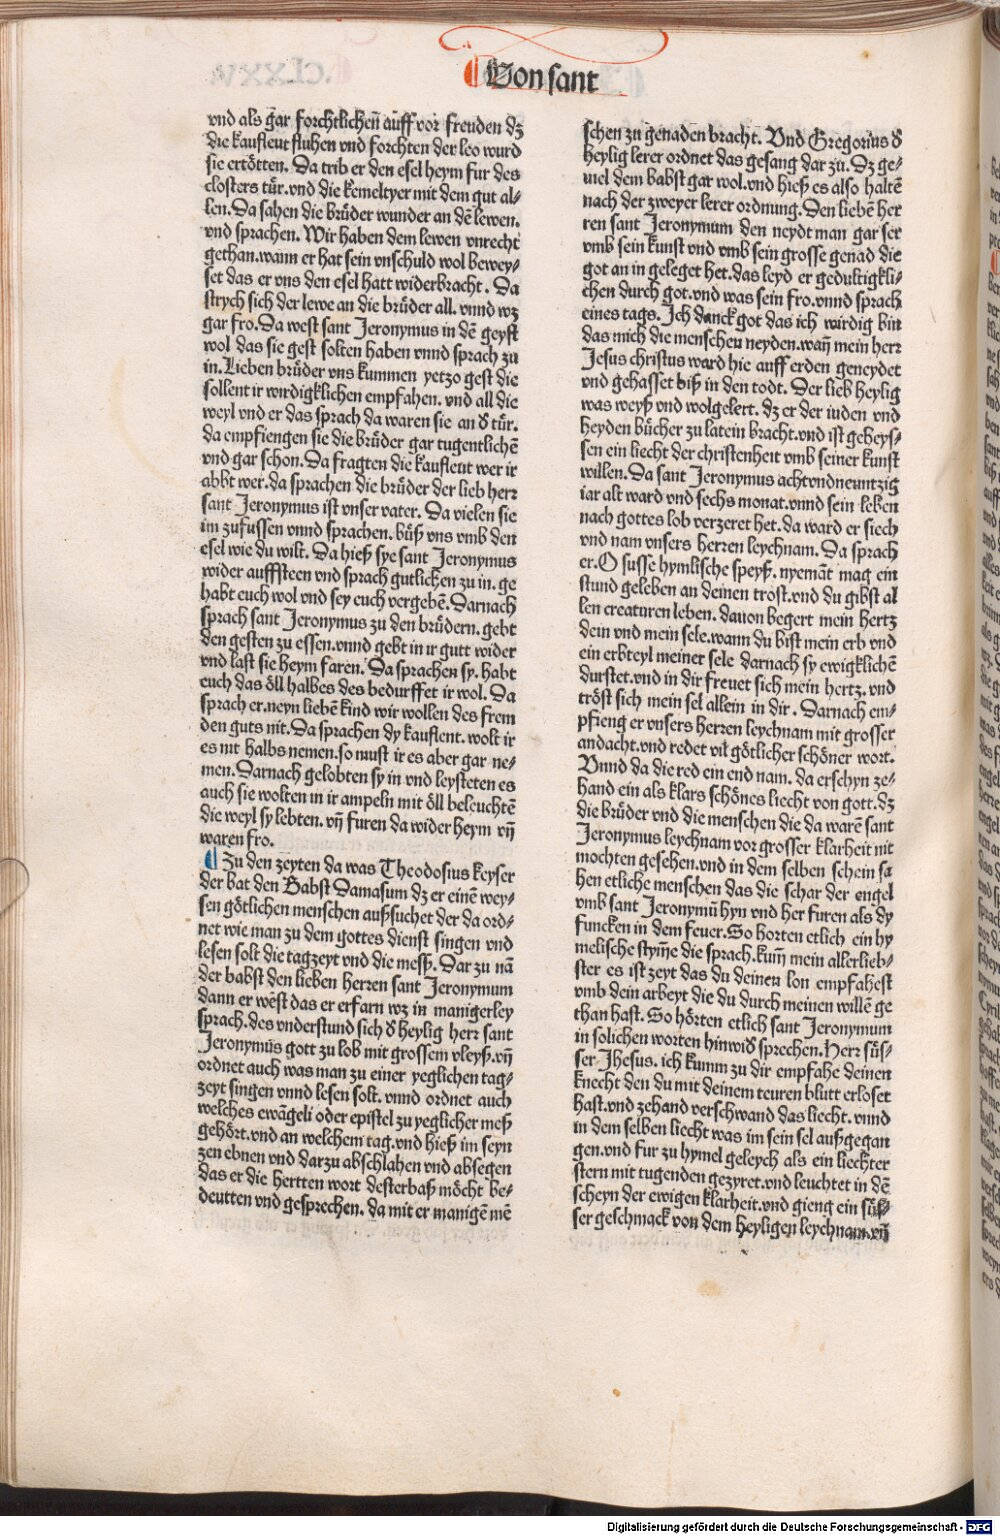 Von sant
vnd als gar forchtlichen̄ auff vor freuden dz
die kaufleut fluhen vnd forchten der leo wurd
sie ertötten. Da trib er den esel heym fur des
closters tür. vnd die kemeltyer mit dem gut al⸗
len. Da sahen die brüder wunder an dē lewen.
vnd sprachen. Wir haben dem lewen vnrecht
gethan. wann er hat sein vnschuld wol bewey⸗
set das er vns den esel hatt widerbracht. Da
strych sich der lewe an die brüder all. vnnd wz
gar fro. Da west sant Jeronymus in dē geyst
wol das sie gest solten haben vnnd sprach zu
in. Lieben brüder vns kummen yetzo gest die
sollent ir wirdigklichen empfahen. vnd all die
weyl vnd er das sprach da waren sie an d̕ tür.
da empfiengen sie die brüder gar tugentlichē
vnd gar schon. Da fragten die kaufleut wer ir
abbt wer. da sprachen die brüder der lieb herr
sant Jeronymus ist vnser vater. Da vielen sie
im zufussen vnnd sprachen. büß vns vmb den
esel wie du wilt. Da hieß sye sant Jeronymus
wider auffsteen vnd sprach gutlichen zu in. ge
habt euch wol vnd sey euch vergebē. Darnach
sprach sant Jeronymus zu den brüdern. gebt
den gesten zu essen. vnnd gebt in ir gutt wider
vnd last sie heym faren. Da sprachen sy. habt
euch das öll halbes des bedurffet ir wol. Da
sprach er. neyn liebē kind wir wollen des frem
den guts nit. Da sprachen dy kaufleut. wolt ir
es nit halbs nemen. so must ir es aber gar ne⸗
men. Darnach gelobten sy in vnd leysteten es
auch sie wolten in ir ampeln mit öll beleuchtē
die weyl sy lebten. vn̄ furen da wider heym vn̄
waren fro.
Zu den zeyten da was Theodosius keyser
der bat den Babst Damasum dz er einē wey⸗
sen götlichen menschen außsuchet der da ord⸗
net wie man zu dem gottes dienst singen vnd
lesen solt die tagzeyt vnd die meß. Dar zu nā
der babst den lieben herren sant Jeronymum
dann er wēst das er erfarn wz in manigerley
sprach. des vnderstund sich d̕ heylig herr sant
Jeronymūs gott zu lob mit grossem vleyß. vn̄
ordnet auch was man zu einer yeglichen tag⸗
zeyt singen vnnd lesen solt. vnnd ordnet auch
welches ewāgeli oder epistel zu yeglicher meß
gehört. vnd an welchem tag. vnd hieß im seyn
zen ebnen vnd darzu abschlahen vnd absegen
das er die hertten wort desterbaß möcht be⸗
deutten vnd gesprechen. da mit er manigē mē
schen zu genaden bracht. Vnd Gregorius d̕
heylig lerer ordnet das gesang dar zu. Dz ge⸗
uiel dem babst gar wol. vnd hieß es also haltē
nach der zweyer lerer ordnung. Den liebē her
ren sant Jeronymum den neydt man gar ser
vmb sein kunst vnd vmb sein grosse genad die
got an in geleget het. das leyd er gedultigkli⸗
chen durch got. vnd was sein fro. vnnd sprach
eines tags. Ich danck got das ich wirdig bin
das mich die menschen neyden. wan̄ mein herr
Jesus christus ward hie auff erden geneydet
vnd gehasset biß in den todt. Der lieb heylig
was weyß vnd wolgelert. dz er der iuden vnd
heyden bücher zu latein bracht. vnd ist geheys⸗
sen ein liecht der christenheit vmb seiner kunst
willen. Da sant Jeronymus achtvndneuntzig
iar alt ward vnd sechs monat. vnnd sein leben
nach gottes lob verzeret het. da ward er siech
vnd nam vnsers herren leychnam. Da sprach
er. O susse hymlische speyß. nyemāt mag ein
stund geleben an deinen trost. vnd du gibst al
len creaturen leben. dauon begert mein hertz
dein vnd mein sele. wann du bist mein erb vnd
ein erbteyl meiner sele darnach sy ewigklichē
durstet. vnd in dir freuet sich mein hertz. vnd
tröst sich mein sel allein in dir. Darnach em⸗
pfieng er vnsers herren leychnam mit grosser
andacht. vnd redet vil götlicher schöner wort.
Vnnd da die red ein end nam. da erschyn ze⸗
hand ein als klars schönes liecht von gott. dz
die brüder vnd die menschen die da warē sant
Jeronymus leychnam vor grosser klarheit nit
mochten gesehen. vnd in dem selben schein sa
hen etliche menschen das die schar der engel
vmb sant Jeronymū hyn vnd her furen als dy
funcken in dem feuer. So horten etlich ein hy
melische stym̄e die sprach. kum̄ mein allerlieb⸗
ster es ist zeyt das du deinen lon empfahest
vmb dein arbeyt die du durch meinen willē ge
than hast. So hörten etlich sant Jeronymum
in solichen worten hinwid̕ sprechen. Herr süs⸗
ser Jhesus. ich kumm zu dir empfahe deinen
knecht den du mit deinem teuren blutt erloset
hast. vnd zehand verschwand das liecht. vnnd
in dem selben liecht was im sein sel außgegan
gen. vnd fur zu hymel geleych als ein liechter
stern mit tugenden gezyret. vnd leuchtet in dē
scheyn der ewigen klarheit. vnd gieng ein süs⸗
ser geschmack von dem heyligen leychnam. vn̄
Digitalisierung gefördert durch die Deutsche Forschungsgemeinschaft - DFG